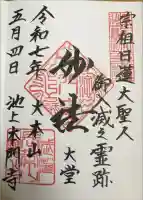 宗祖日蓮大聖人
御入滅之霊跡
妙法
大堂
大本山
池上本門寺
令和七年
五月四日